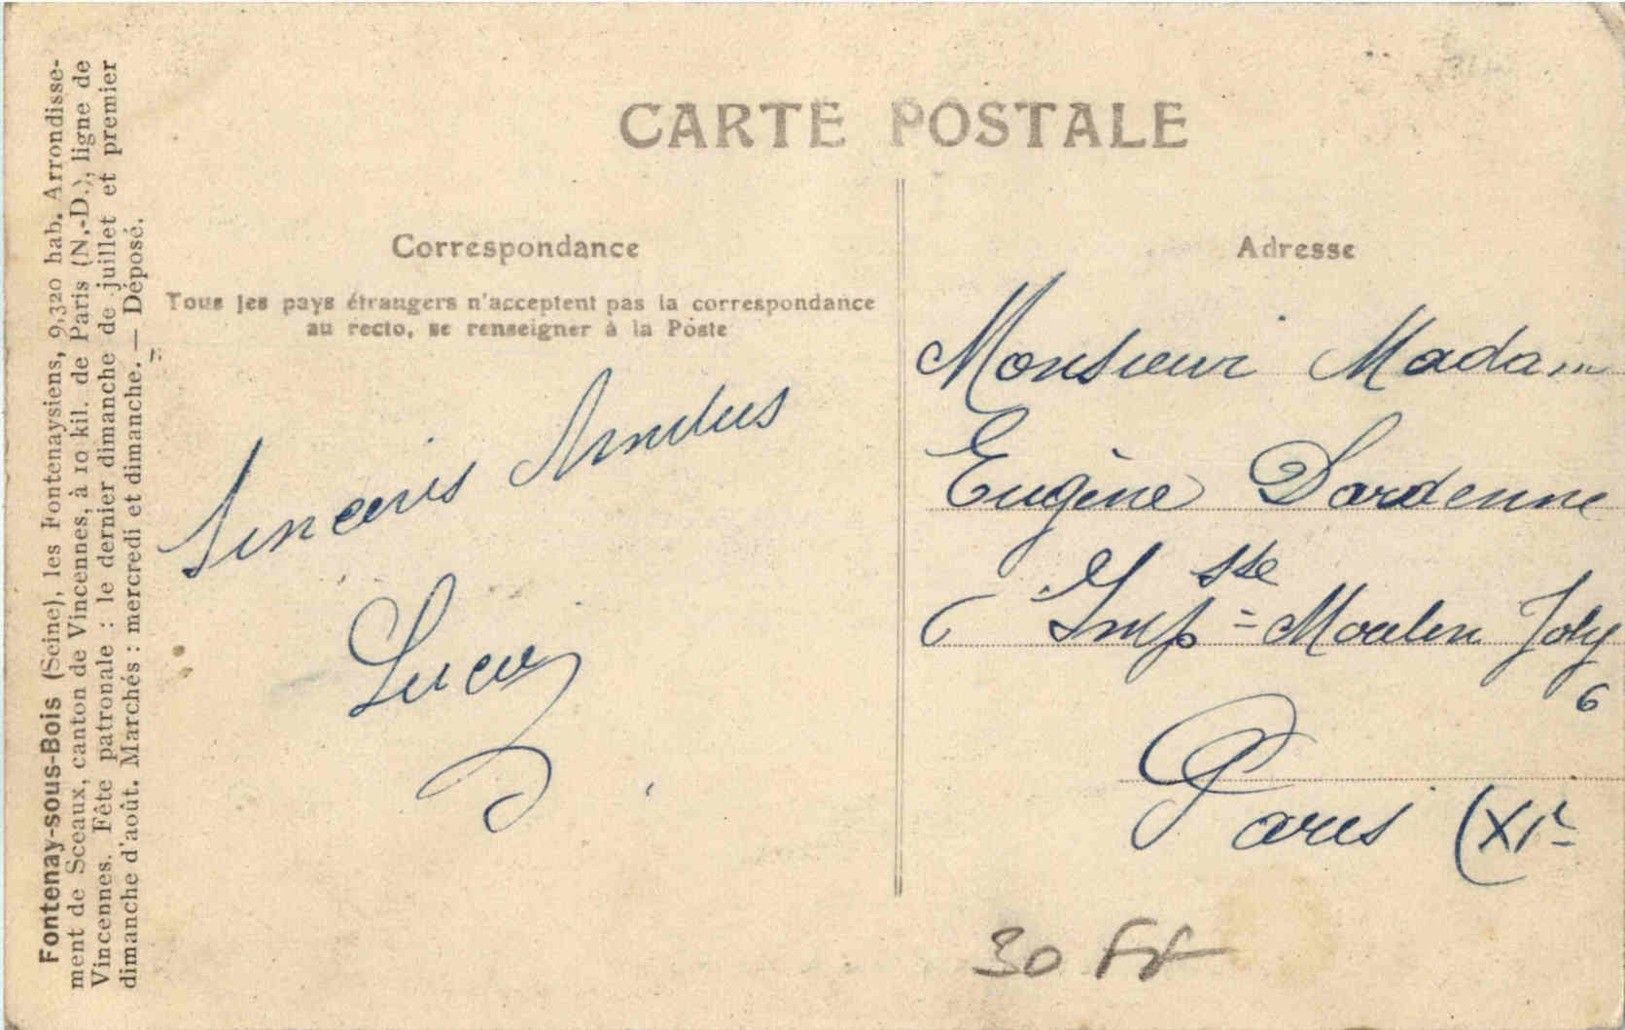 CARTE POSTALE
Correspondance
Tous les pays étrangers n'acceptent pas la correspondance
au recto, se renseigner à la Poste
Sinceris Amitus
Lucie
Adresse
Monsieur Madam
Eugène Dardenne
6 Impsse = Moulin Joly
6
Paris (XIe
30 FF
Fontenay-sous-Bois (Seine), les Fontenaysiens, 9,320 hab. Arrondisse-
ment de Sceaux, canton de Vincennes, à 10 kil. de Paris (N.-D.), ligne de
Vincennes. Fête patronale : le dernier dimanche de juillet et premier
dimanche d'août. Marchés : mercredi et dimanche. — Déposé.